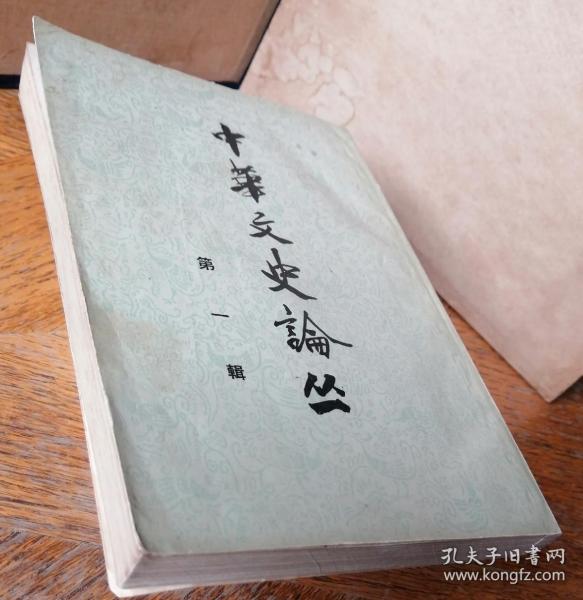 中華文史論丛
第一輯
孔夫子旧书网
www.kongfz.com